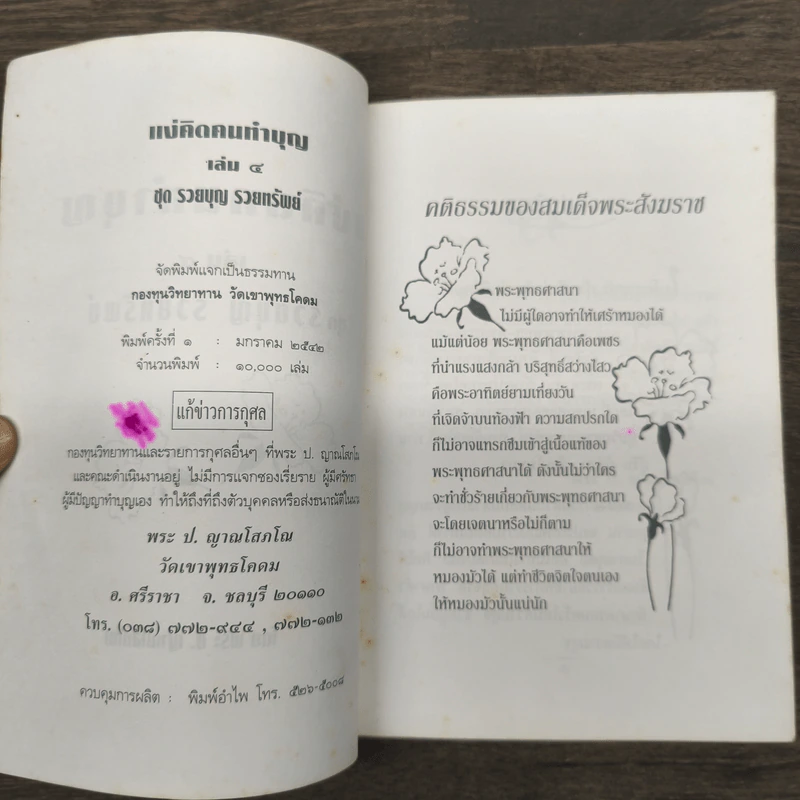 แง่คิดคนทำบุญ
เล่ม ๔
ชุด รวยบุญ รวยทรัพย์
จัดพิมพ์แจกเป็นธรรมทาน
กองทุนวิทยาทาน วัดเขาพุทธโคดม
พิมพ์ครั้งที่ ๑ : มกราคม ๒๕๔๒
จำนวนพิมพ์ : ๑๐,๐๐๐ เล่ม
แก้ข่าวการกุศล
กองทุนวิทยาทานและรายการกุศลอื่นๆ ที่พระ ป. ญาณโสภโณ
และคณะดำเนินงานอยู่ ไม่มีการแจกซองเรี่ยราย ผู้มีศรัทธา
ผู้มีปัญญาทำบุญเอง ทำให้ถึงที่ถึงตัวบุคคลหรือส่งธนาณัติในนาม
พระ ป. ญาณโสภโณ
วัดเขาพุทธโคดม
อ. ศรีราชา จ. ชลบุรี ๒๐๑๑๐
โทร. (๐๓๘) ๗๗๒-๙๔๔ , ๗๗๒-๑๓๒
ควบคุมการผลิต : พิมพ์อำไพ โทร. ๕๒๖-๕๐๐๘
คติธรรมของสมเด็จพระสังฆราช
พระพุทธศาสนา
ไม่มีผู้ใดอาจทำให้เศร้าหมองได้
แม้แต่น้อย พระพุทธศาสนาคือเพชร
ที่น้ำแรงแสงกล้า บริสุทธิ์สว่างไสว
คือพระอาทิตย์ยามเที่ยงวัน
ที่เจิดจ้าบนท้องฟ้า ความสกปรกใด
ก็ไม่อาจแทรกซึมเข้าสู่เนื้อแท้ของ
พระพุทธศาสนาได้ ดังนั้นไม่ว่าใคร
จะทำชั่วร้ายเกี่ยวกับพระพุทธศาสนา
จะโดยเจตนาหรือไม่ก็ตาม
ก็ไม่อาจทำพระพุทธศาสนาให้
หมองมัวได้ แต่ทำชีวิตจิตใจตนเอง
ให้หมองมัวนั้นแน่นัก